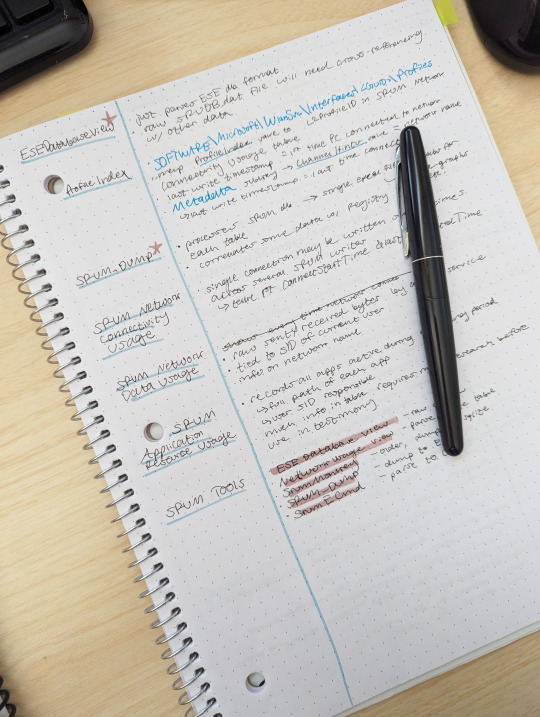 ESEDatabaseView
just parses ESE db format
raw SRUDB.dat file will need cross-referencing
w/ other data
ProfileIndex
SOFTWARE\Microsoft\WlanSvc\Interfaces\<GUID>\Profiles
map ProfileIndex value to ProfileID in SRUM Network
Connectivity Usage table
last write timestamp = 1st time PC connection to network
Metadata subkey → Channel Hints value = network name
↳ last write timestamp = last time connected
SRUM-DUMP
• processes SRUM db → single Excel file for
each table
• correlates some data w/ Registry
SRUM Network
Connectivity
Usage
• single connection may be written times
across several SRUM writes
↳ ConnectStartTime & Time
SRUM Network
Data Usage
shows every time network
• raw sent/received bytes by service
• tied to SID of current user
• info on network name
SRUM
Application
Resource Usage
• records all apps active during period
↳ full path of each app
↳ user SID responsible
• much info in table requires research before
use in testimony
SRUM TOOLS
• ESE Database view - raw
• Network usage view - parse table
• Srum Monkey - order, dump
• SRUM_DUMP - dump to
• SrumECmd - parse to